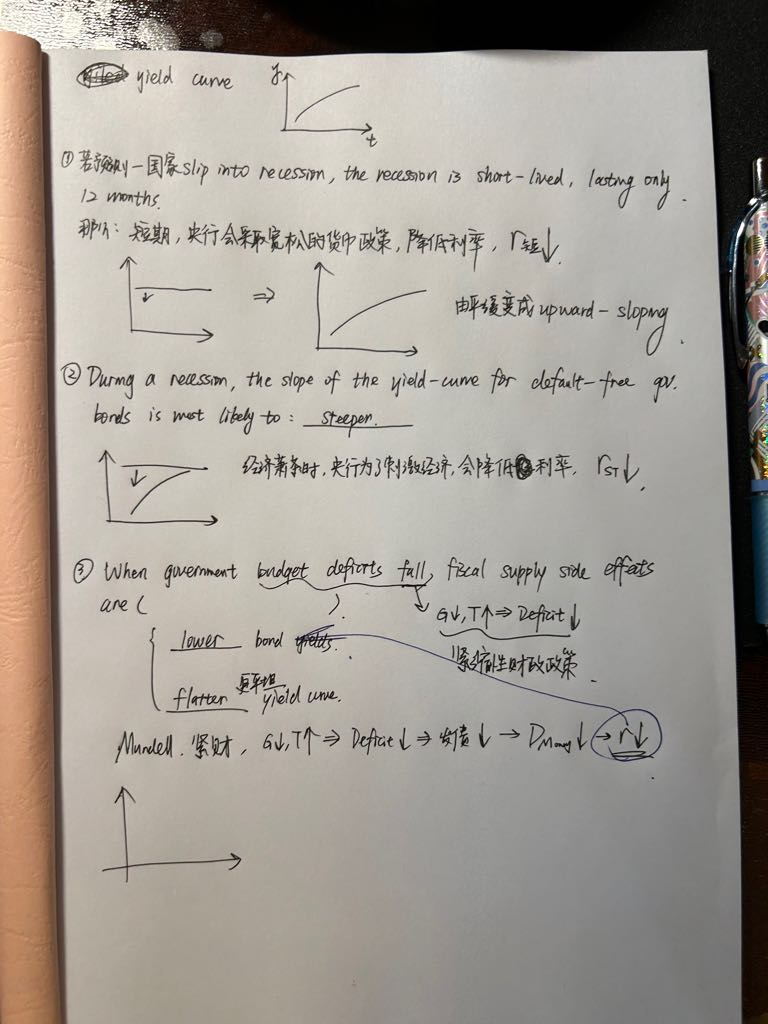 yield curve y
t
① 若预测一国家slip into recession, the recession is short-lived, lasting only
12 months.
那么: 短期, 央行会采取宽松的货币政策, 降低利率, r短↓.
⇒ 由平缓变成upward-sloping.
② During a recession, the slope of the yield-curve for default-free gov.
bonds is most likely to: steeper.
经济萧条时, 央行为了刺激经济, 会降低利率, rST↓.
③ When government budget deficits fall, fiscal supply side effects
are ( ).
G↓, T↑ ⇒ Deficit↓
lower bond yields.
紧缩性财政政策.
更平坦
flatter yield curve.
Mundell. 紧财, G↓, T↑ ⇒ Deficit↓ ⇒ 发债↓ → DMoney↓ → r↓.